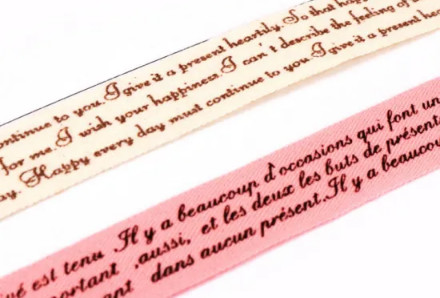 continue to you.I give it a present heartily.So that
for me.I wish your happiness.I can't describe the feeling of
ay.Happy every day must continue to you.I give it a present
ué est tenu Il y a beaucoup d'occasions qui font un
portant ,aussi, et les deux les buts de présent
ant dans aucun présent.Il y a beaucou